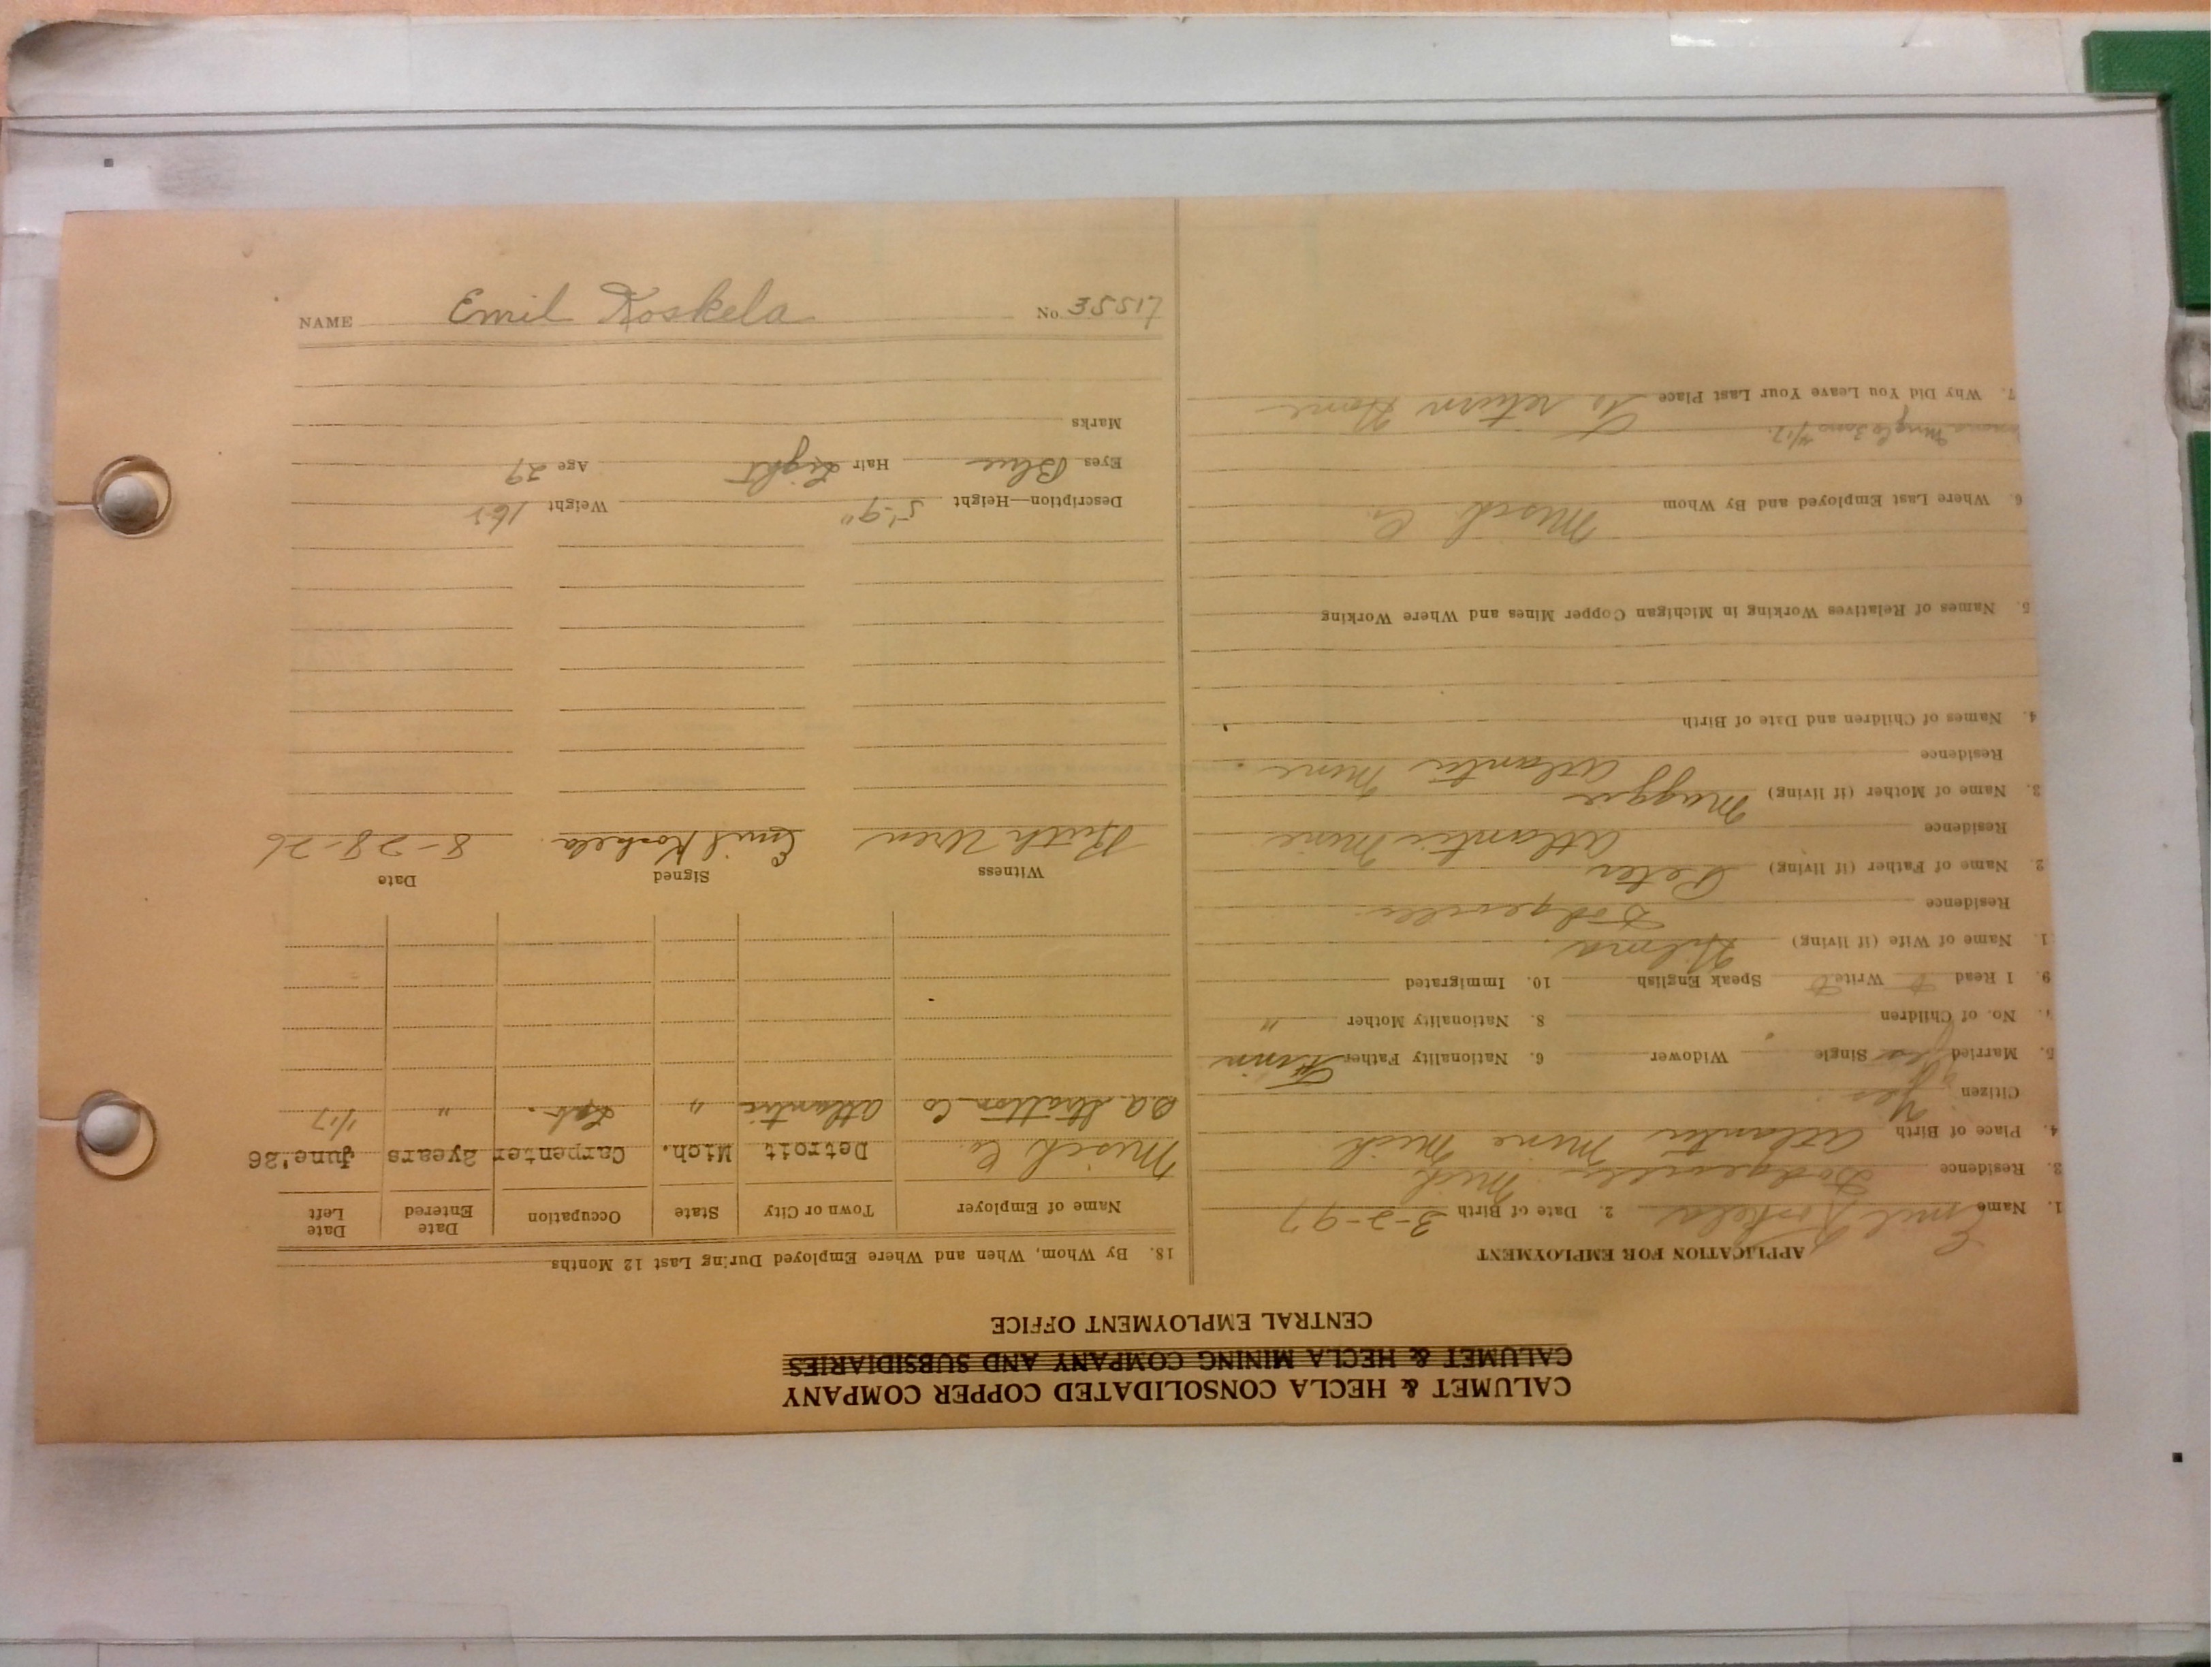 CALUMET & HECLA CONSOLIDATED COPPER COMPANY
CALUMET & HECLA MINING COMPANY AND SUBSIDIARIES
CENTRAL EMPLOYMENT OFFICE
APPLICATION FOR EMPLOYMENT
1. Name Emil Koskela 2. Date of Birth 3-2-97
3. Residence Dodgeville Mich
4. Place of Birth Atlantic Mine Mich
Citizen Yes
5. Married Yes Single Widower 6. Nationality Father Finn
7. No. of Children 8. Nationality Mother "
9. I Read Write Speak English 10. Immigrated
1. Name of Wife (if living) Hilma
Residence Dodgeville
2. Name of Father (if living) Peter
Residence Atlantic Mine
3. Name of Mother (if living) Maggie
Residence Atlantic Mine
4. Names of Children and Date of Birth
5. Names of Relatives Working in Michigan Copper Mines and Where Working
6. Where Last Employed and By Whom Misch Co.
7. Why Did You Leave Your Last Place To return Home
18. By Whom, When and Where Employed During Last 12 Months
Name of Employer Town or City State Occupation Date Entered Date Left
Misch Co. Detroit Mich. Carpenter 2years June'26
Stratton Co Atlantic " " 1/17
Witness Signed Date
Ruth Uren Emil Koskela 8-28-26
Description—Height 5'-9" Weight 165
Eyes Blue Hair Light Age 29
Marks
NAME Emil Koskela No. 35517